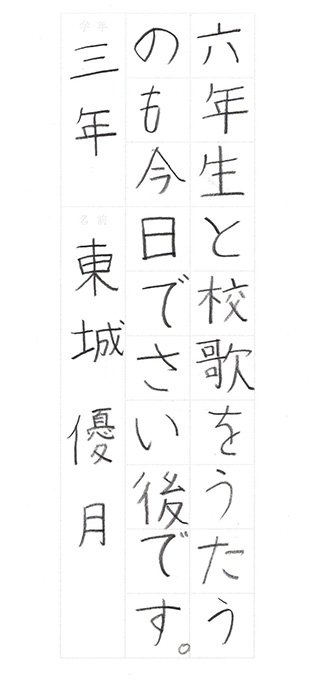 六年生と校歌をうたう
のも今日でさい後です。
学年
三年
名前
東城優月